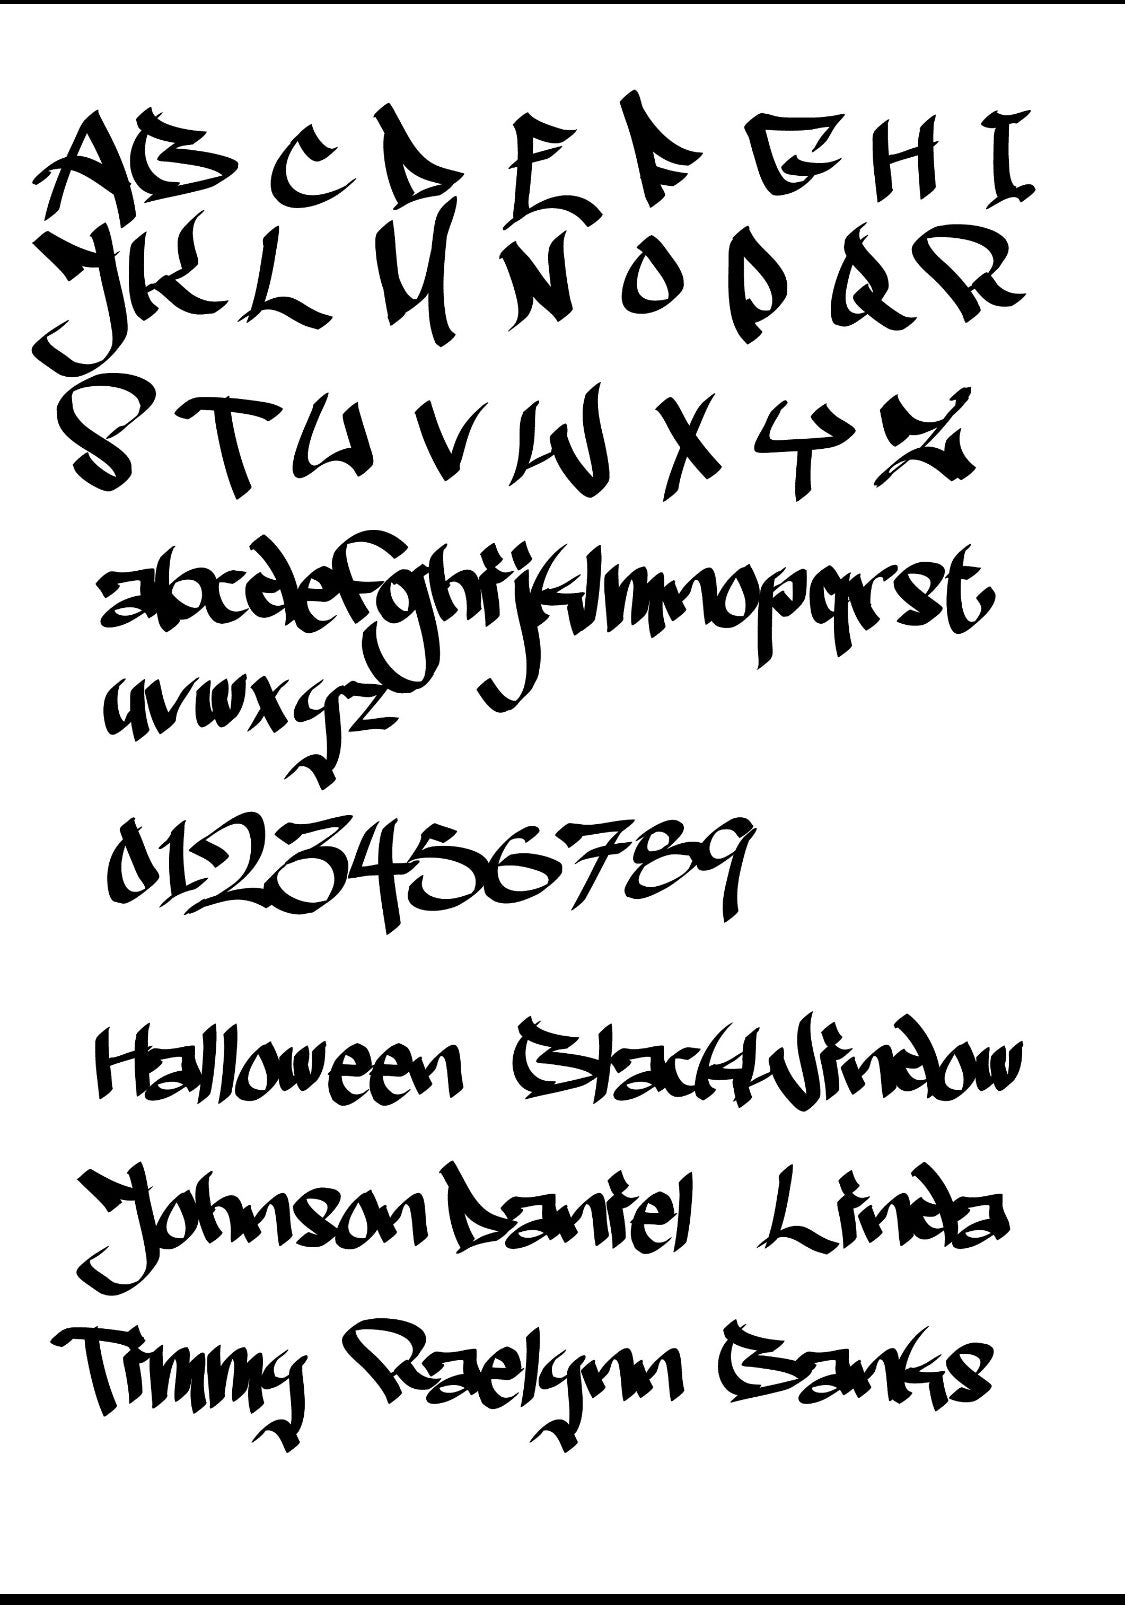 A B C D E F G H I
J K L M N O P Q R
S T U V W X Y Z
abcdefghijklmnopqrst
uvwxyz
0123456789
Halloween BlackWindow
Johnson Daniel Linda
Timmy Raelynn Banks